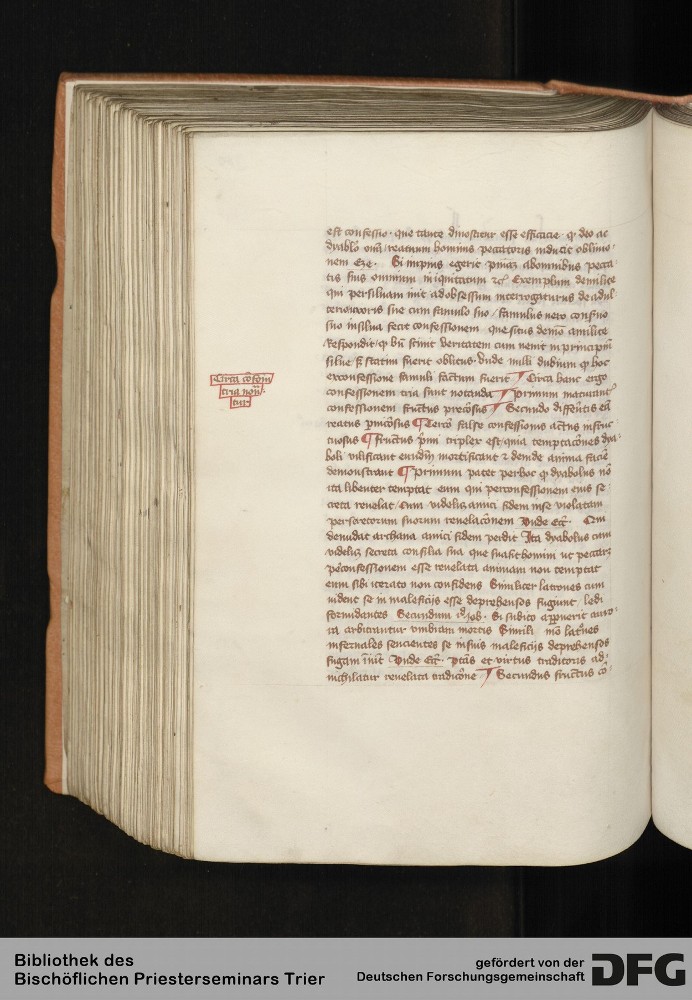 est confessio · que tante dinoscitur esse efficacie · q deo ac
dyabolo om̄ reatuum hominis peccatoris inducit oblivio
nem Eze · Si impius egerit pn̄iaȝ ab omnibus pecca
tis suis omnium iniquitatum ⁊cͣ Exemplum de milite
qui per siluam iuit ad obsessum interrogaturus de adul
terio uxoris sue cum famulo suo / famulus uero confino
suo in silua fecit confessionem que situs demō a milite
Respondit / q bn̄ sciuit veritatem cum venit in principiū
silue / s̄ statim fuerit oblitus · vnde militi dudium q hoc
ex confessione famuli factum fuerit ¶ Circa hanc ergo
confessionem tria sunt notanda ¶ primum
confessionem fructus precōsus ¶ Secundo
reatus pn̄icōsus ¶ Tercō false confessionis actus infruc
tuosus ¶ fructus p̄mi triplex est / quia temptacōnes dya
boli vilificant mortificant ⁊ deinde anima facie
demonstrant ¶ Primum patet per hoc q dyabolus nō
ita libenter temptat eum qui per confessionem eius se
creta reuelat / Cum videlȝ amici fidem in se violatam
per secretorum suorum reuelacōnem Vnde Ecc̄ · Qui
denudat archana amici fidem perdit Ita dyabolus cum
videlȝ secreta consilia sua que suasit homini ut peccarȝ
per confessionem esse reuelata animam non temptat
eum sibi iterato non confidens Similiter latrones cum
vident se in maleficijs esse deprehensos fugiunt / ledi
formidantes Secundum id job · Si subito apparuerit auro
ra arbitrantur umbram mortis Simili mō latrōnes
infernales sencientes se in suis maleficijs deprehensos
fugam ineūt Vnde Ecc̄ · ptās et virtus traditoris ad
nichilatur reuelata tradicōne ¶ Secundus fructus cō
Circa cōfessiōȝ
tria notā
tur
Bibliothek des
Bischöflichen Priesterseminars Trier
gefördert von der
Deutschen Forschungsgemeinschaft
DFG